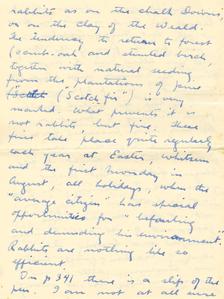 rabbits as on the chalk Downs,
or on the clay of the Weald.
The tendency to return to forest
(scrub-oak and stunted birch
together with natural seeding
from the plantations of pines
("Scotch fir") is very
marked. What prevents it is
not rabbits, but fire. These
fires take place quite regularly
each year at Easter, Whitsun
and the first Monday in
August, all holidays, when the
"average citizen" has special
opportunities for "befouling
and denuding his environment."
Rabbits are nothing like so
efficient.
In p 341 there is a slip of the
pen. I am not at all sure